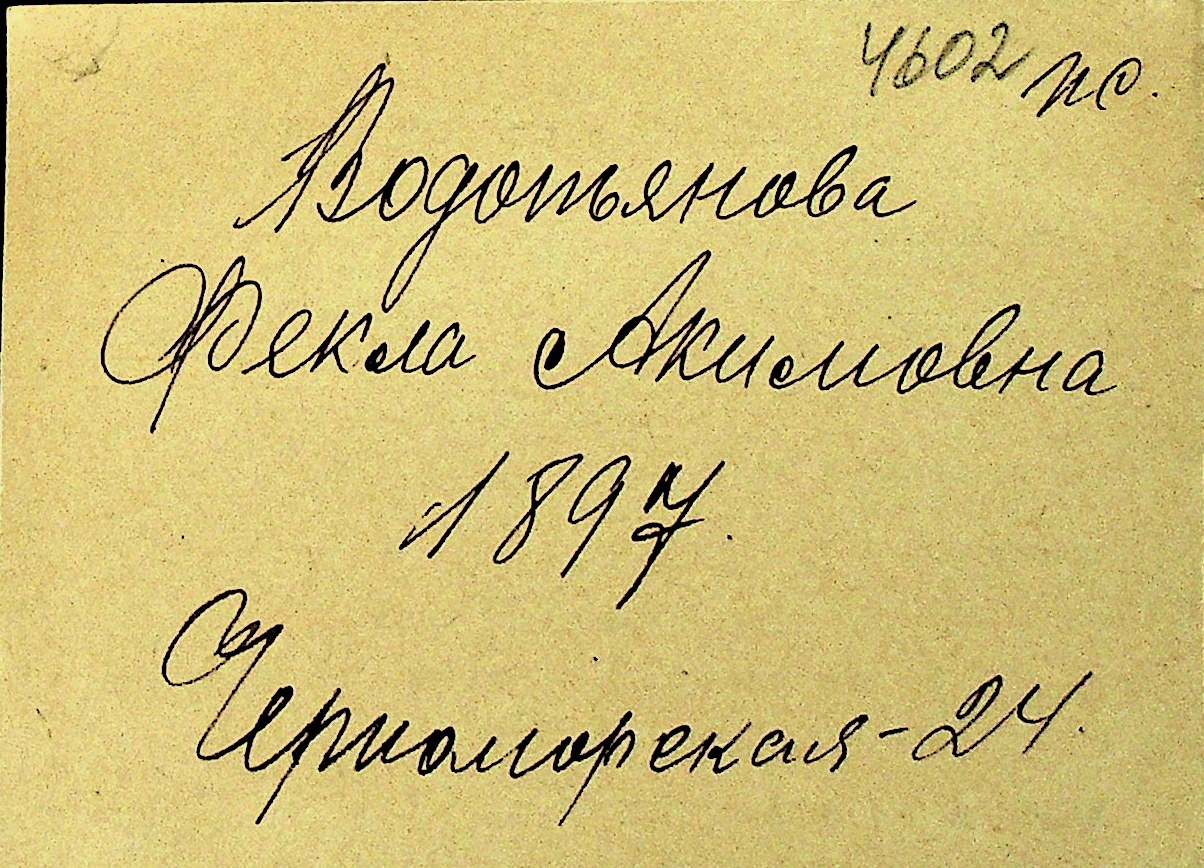 4602 пс.
Водотьянова
Фекла Акимовна
1897.
Черноморская - 24.